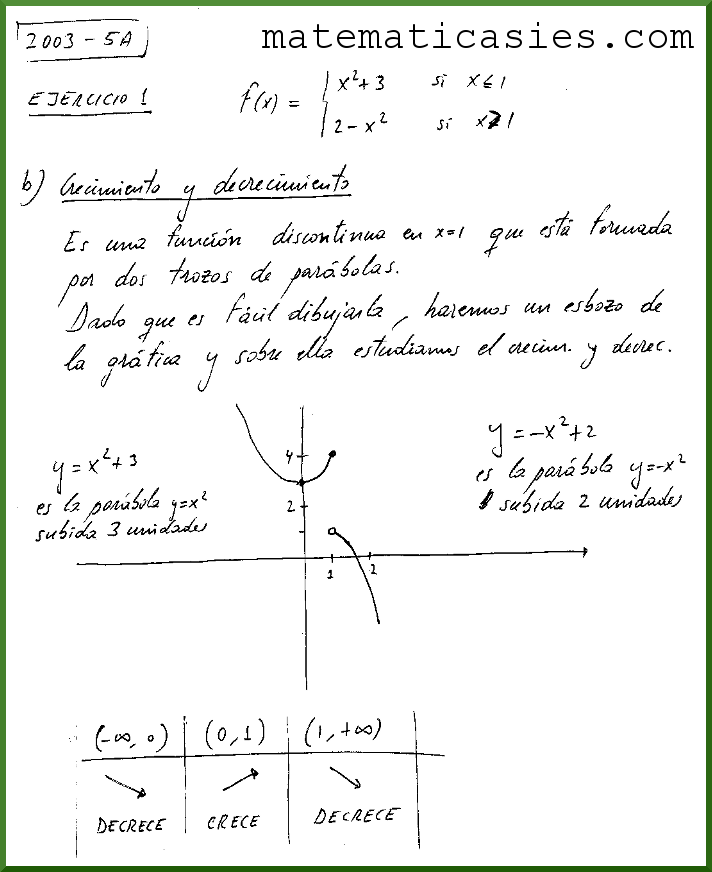 2003 - 5A
matematicasies.com
EJERCICIO 1
f(x) = { x²+3 si x≤1
2-x² si x>1
b) Crecimiento y decrecimiento
Es una función discontinua en x=1 que está formada
por dos trozos de parábolas.
Dado que es fácil dibujarla, haremos un esbozo de
la gráfica y sobre ella estudiamos el crecim. y decrec.
y = x²+3
es la parábola y=x²
subida 3 unidades
y = -x²+2
es la parábola y=-x²
subida 2 unidades
4
2
1 2
(-∞, 0) (0, 1) (1, +∞)
DECRECE CRECE DECRECE